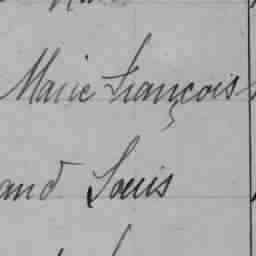 Marie François
and Louis